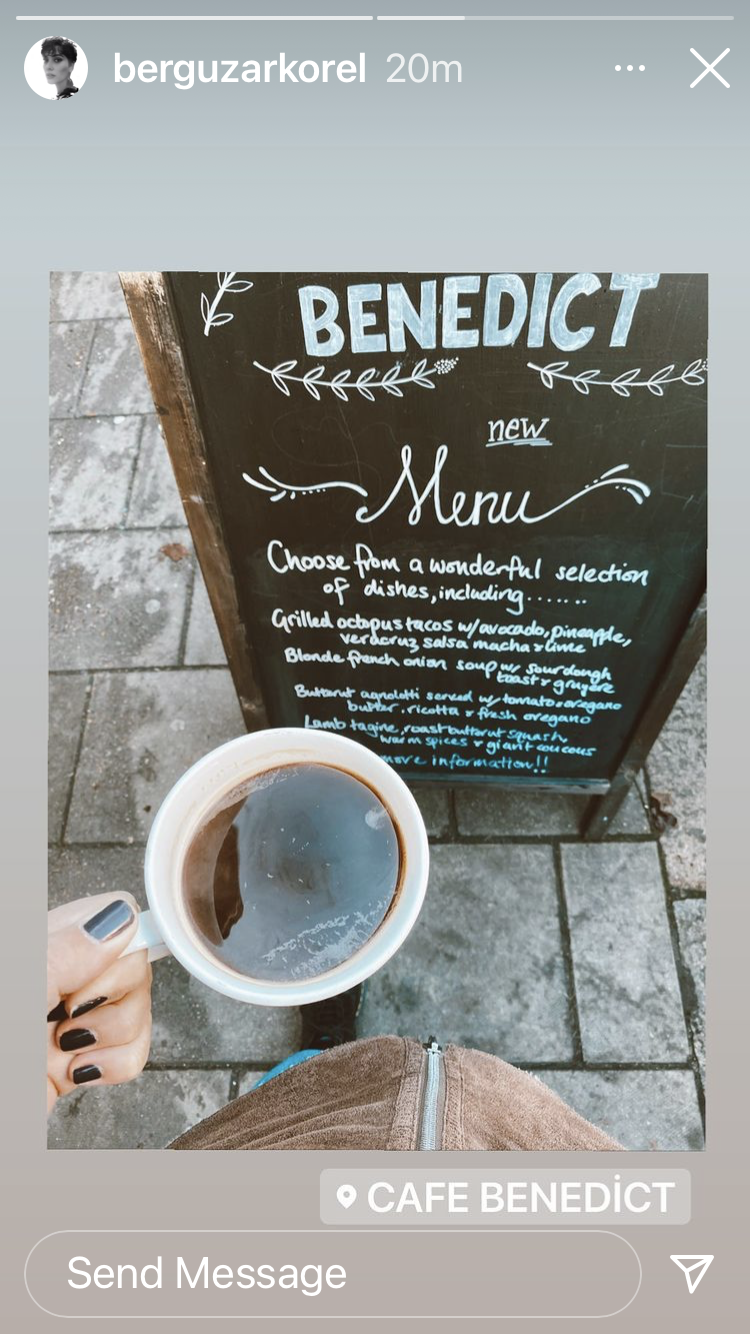 berguzarkorel 20m
BENEDICT
new
Menu
Choose from a wonderful selection
of dishes, including.......
Grilled octopus tacos w/avocado, pineapple,
veracruz salsa macha & lime
Blonde french onion soup w/ sourdough
toast & gruyere
Butternut agnolotti served w/ tomato & oregano
butter, ricotta & fresh oregano
Lamb tagine, roast butternut squash,
warm spices & giant couscous
more information!!
CAFE BENEDİCT
Send Message